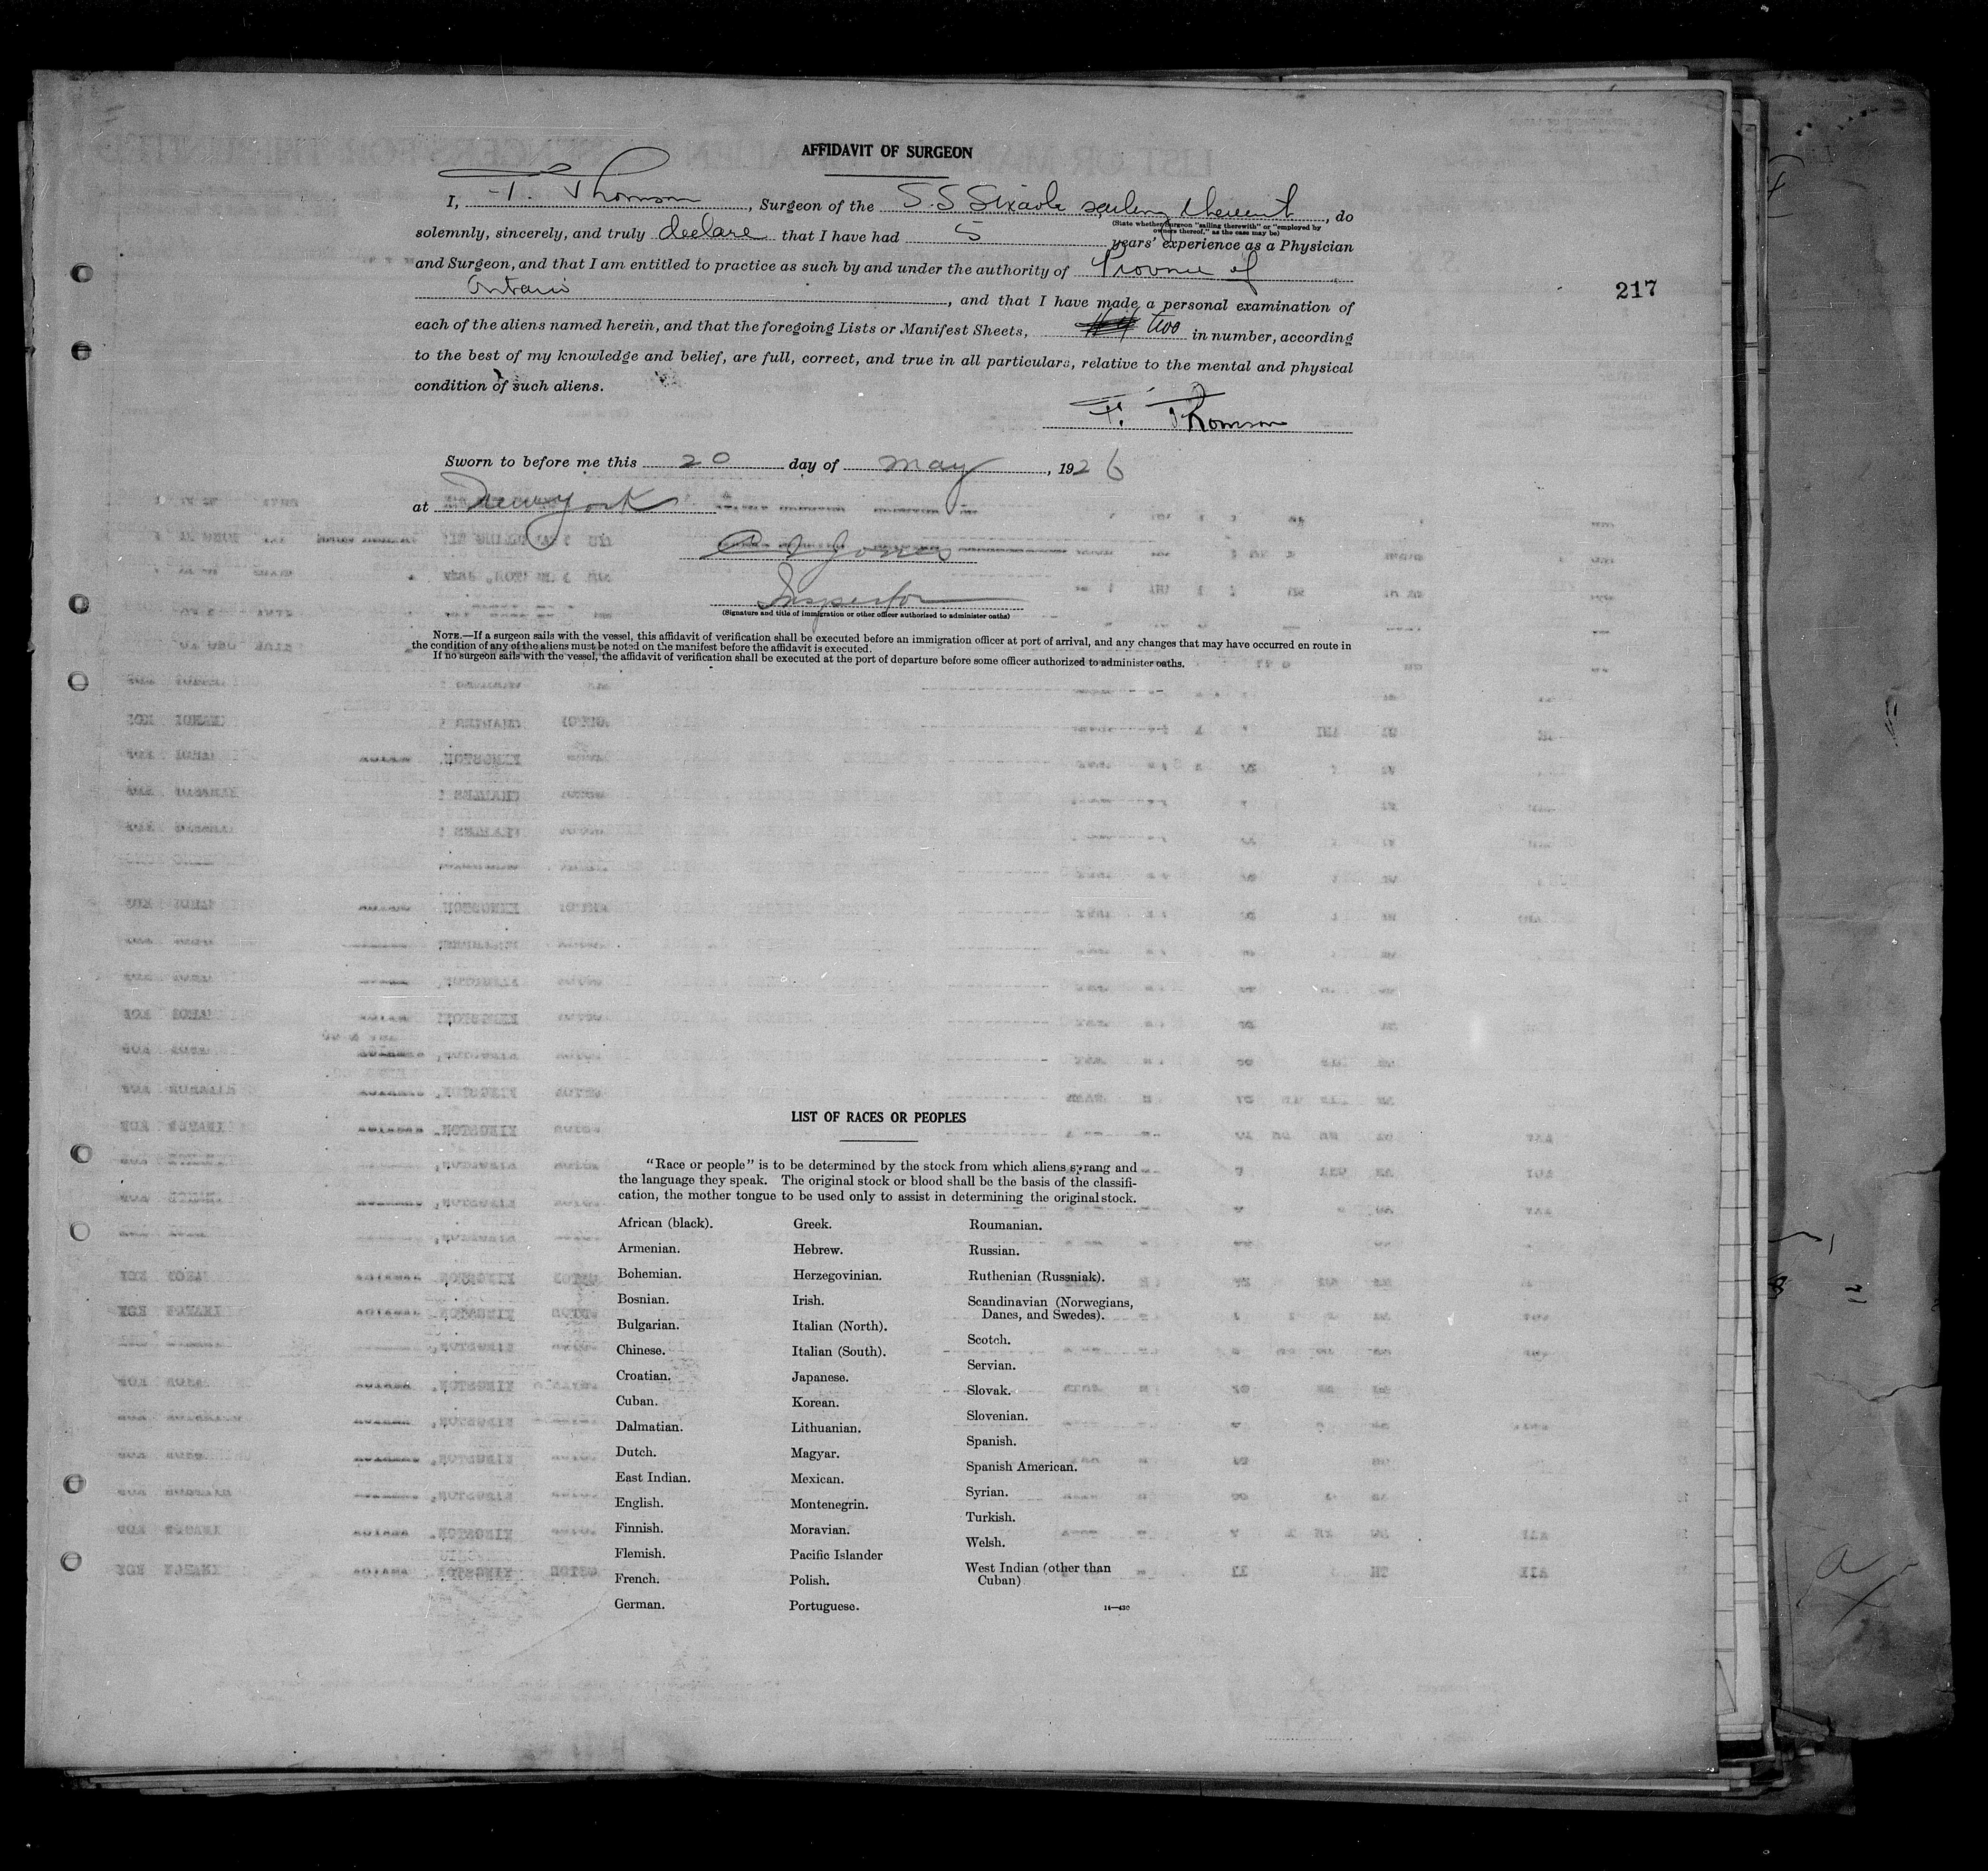 AFFIDAVIT OF SURGEON
I, F. Thomson, Surgeon of the S.S Sixaola sailing therewith, do
(State whether Surgeon "sailing therewith" or "employed by
owners thereof," as the case may be)
solemnly, sincerely, and truly declare that I have had 5 years' experience as a Physician
and Surgeon, and that I am entitled to practice as such by and under the authority of Province of
Ontario, and that I have made a personal examination of
217
each of the aliens named herein, and that the foregoing Lists or Manifest Sheets, two in number, according
to the best of my knowledge and belief, are full, correct, and true in all particulars, relative to the mental and physical
condition of such aliens.
F. Thomson
Sworn to before me this 20 day of may, 1926
at New York
Jones
Inspector
(Signature and title of immigration or other officer authorized to administer oaths)
NOTE.—If a surgeon sails with the vessel, this affidavit of verification shall be executed before an immigration officer at port of arrival, and any changes that may have occurred en route in
the condition of any of the aliens must be noted on the manifest before the affidavit is executed.
If no surgeon sails with the vessel, the affidavit of verification shall be executed at the port of departure before some officer authorized to administer oaths.
LIST OF RACES OR PEOPLES
"Race or people" is to be determined by the stock from which aliens sprang and
the language they speak. The original stock or blood shall be the basis of the classifi-
cation, the mother tongue to be used only to assist in determining the original stock.
African (black).
Armenian.
Bohemian.
Bosnian.
Bulgarian.
Chinese.
Croatian.
Cuban.
Dalmatian.
Dutch.
East Indian.
English.
Finnish.
Flemish.
French.
German.
Greek.
Hebrew.
Herzegovinian.
Irish.
Italian (North).
Italian (South).
Japanese.
Korean.
Lithuanian.
Magyar.
Mexican.
Montenegrin.
Moravian.
Pacific Islander
Polish.
Portuguese.
Roumanian.
Russian.
Ruthenian (Russniak).
Scandinavian (Norwegians,
Danes, and Swedes).
Scotch.
Servian.
Slovak.
Slovenian.
Spanish.
Spanish American.
Syrian.
Turkish.
Welsh.
West Indian (other than
Cuban)